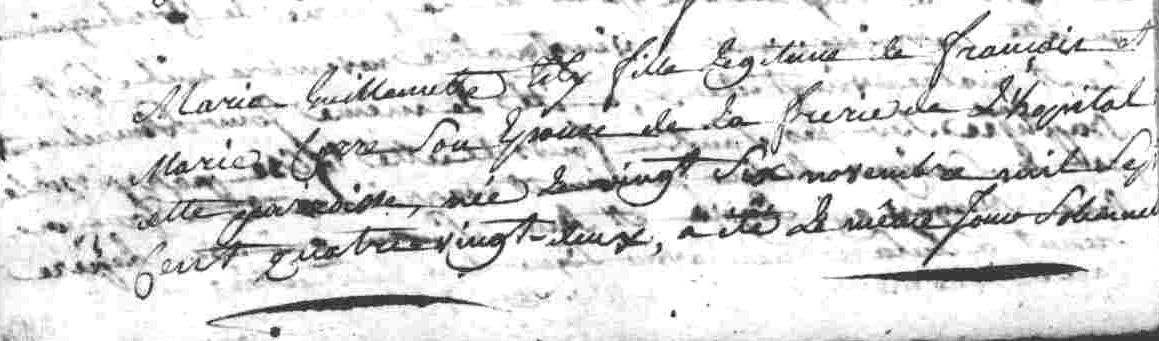 Marie Guillemette fille legitime de françois et
Marie Corre Son Epouse de La frerie de L'hopital
cette paroisse, née Le vingt Six novembre mil Sept
Cent quatre vingt-deux, a été Le même Jour